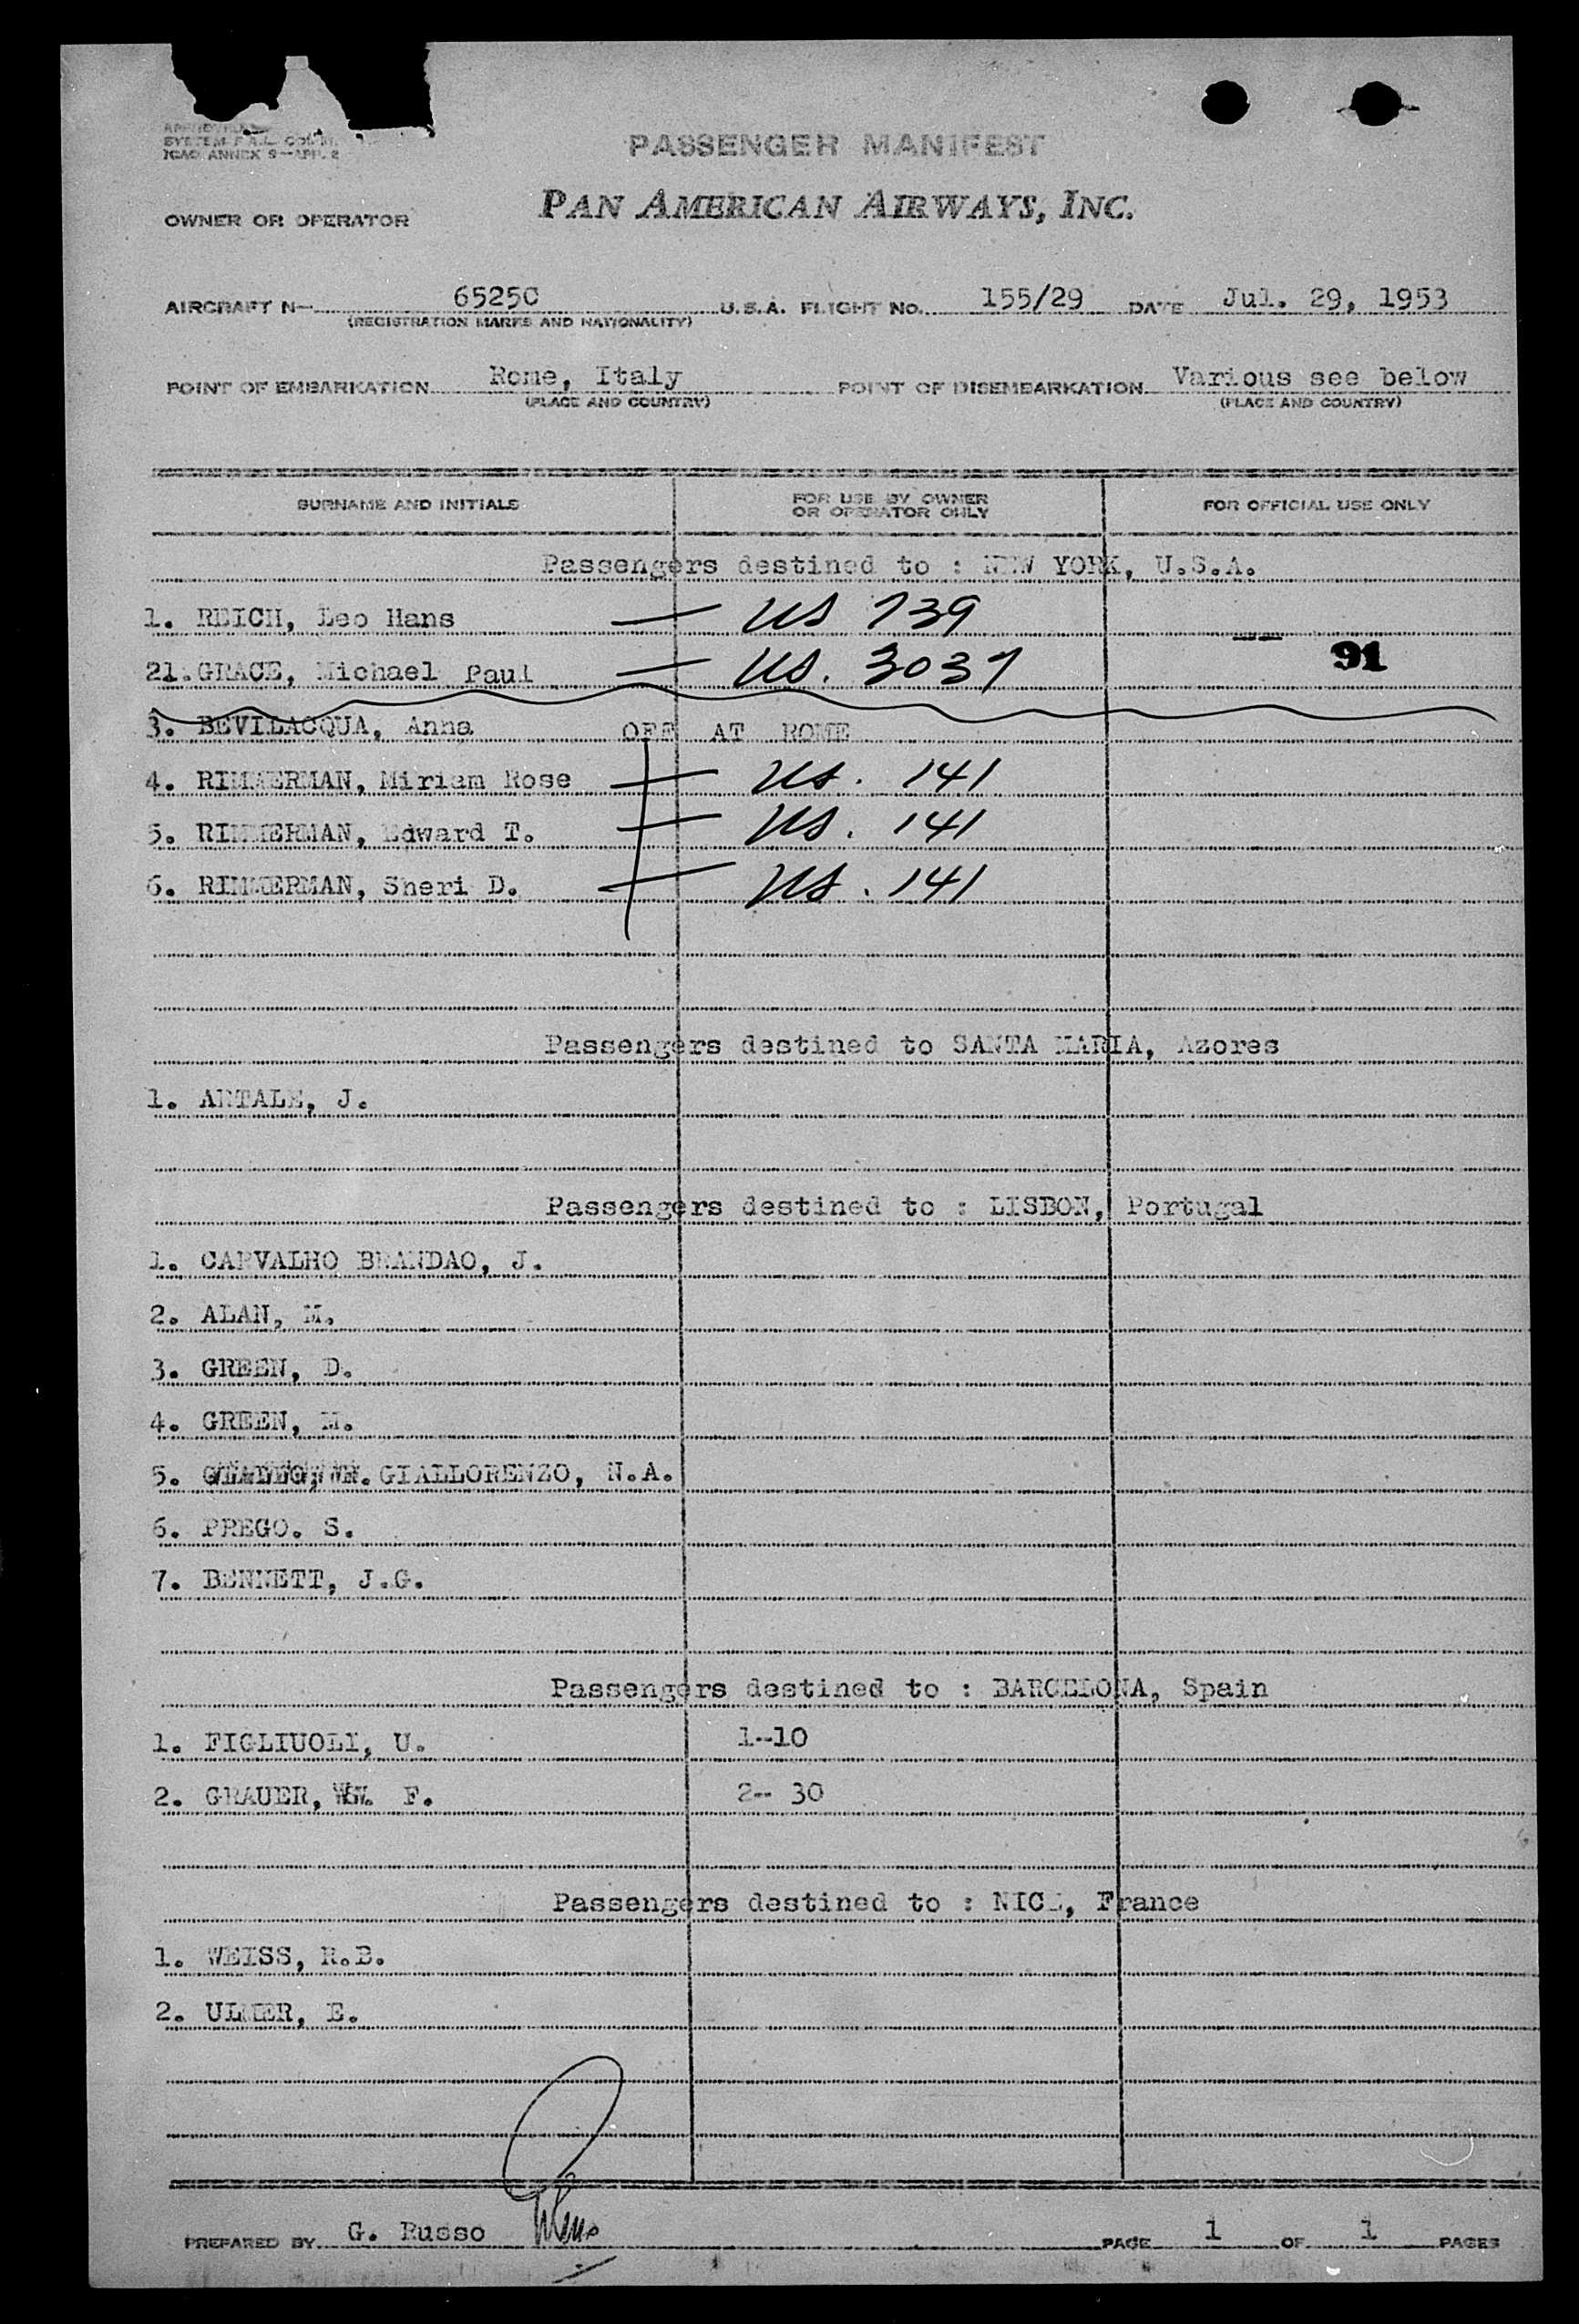 SYSTEM F.A.L. COM.
ICAO ANNEX 9—APP. 2
PASSENGER MANIFEST
OWNER OR OPERATOR PAN AMERICAN AIRWAYS, INC.
AIRCRAFT N— 65250 U.S.A. FLIGHT NO. 155/29 DATE Jul. 29, 1953
(REGISTRATION MARKS AND NATIONALITY)
POINT OF EMBARKATION Rome, Italy POINT OF DISEMBARKATION Various see below
(PLACE AND COUNTRY) (PLACE AND COUNTRY)
SURNAME AND INITIALS FOR USE BY OWNER OR OPERATOR ONLY FOR OFFICIAL USE ONLY
Passengers destined to : NEW YORK, U.S.A.
1. REICH, Leo Hans — US 739
21.GRACE, Michael Paul — US. 3037 -- 91
3. BEVILACQUA, Anna OFF AT ROME
4. RIMMERMAN, Miriam Rose — US. 141
5. RIMMERMAN, Edward T. — US. 141
6. RIMMERMAN, Sheri D. — US. 141
Passengers destined to SANTA MARIA, Azores
1. ARTALE, J.
Passengers destined to : LISBON, Portugal
1. CARVALHO BRANDAO, J.
2. ALAN, M.
3. GREEN, D.
4. GREEN, M.
5. GIALLORENZO, N.A.
6. PREGO. S.
7. BENNETT, J.G.
Passengers destined to : BARCELONA, Spain
1. FIGLIUOLI, U. 1--10
2. GRAUER, F. 2-- 30
Passengers destined to : NICE, France
1. WEISS, R.B.
2. ULMER, E.
PREPARED BY G. Russo PAGE 1 OF 1 PAGES